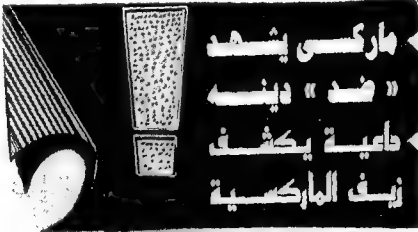 ماركسى يشهد
« ضد » دينه
داعية يكشف
زيف الماركسية